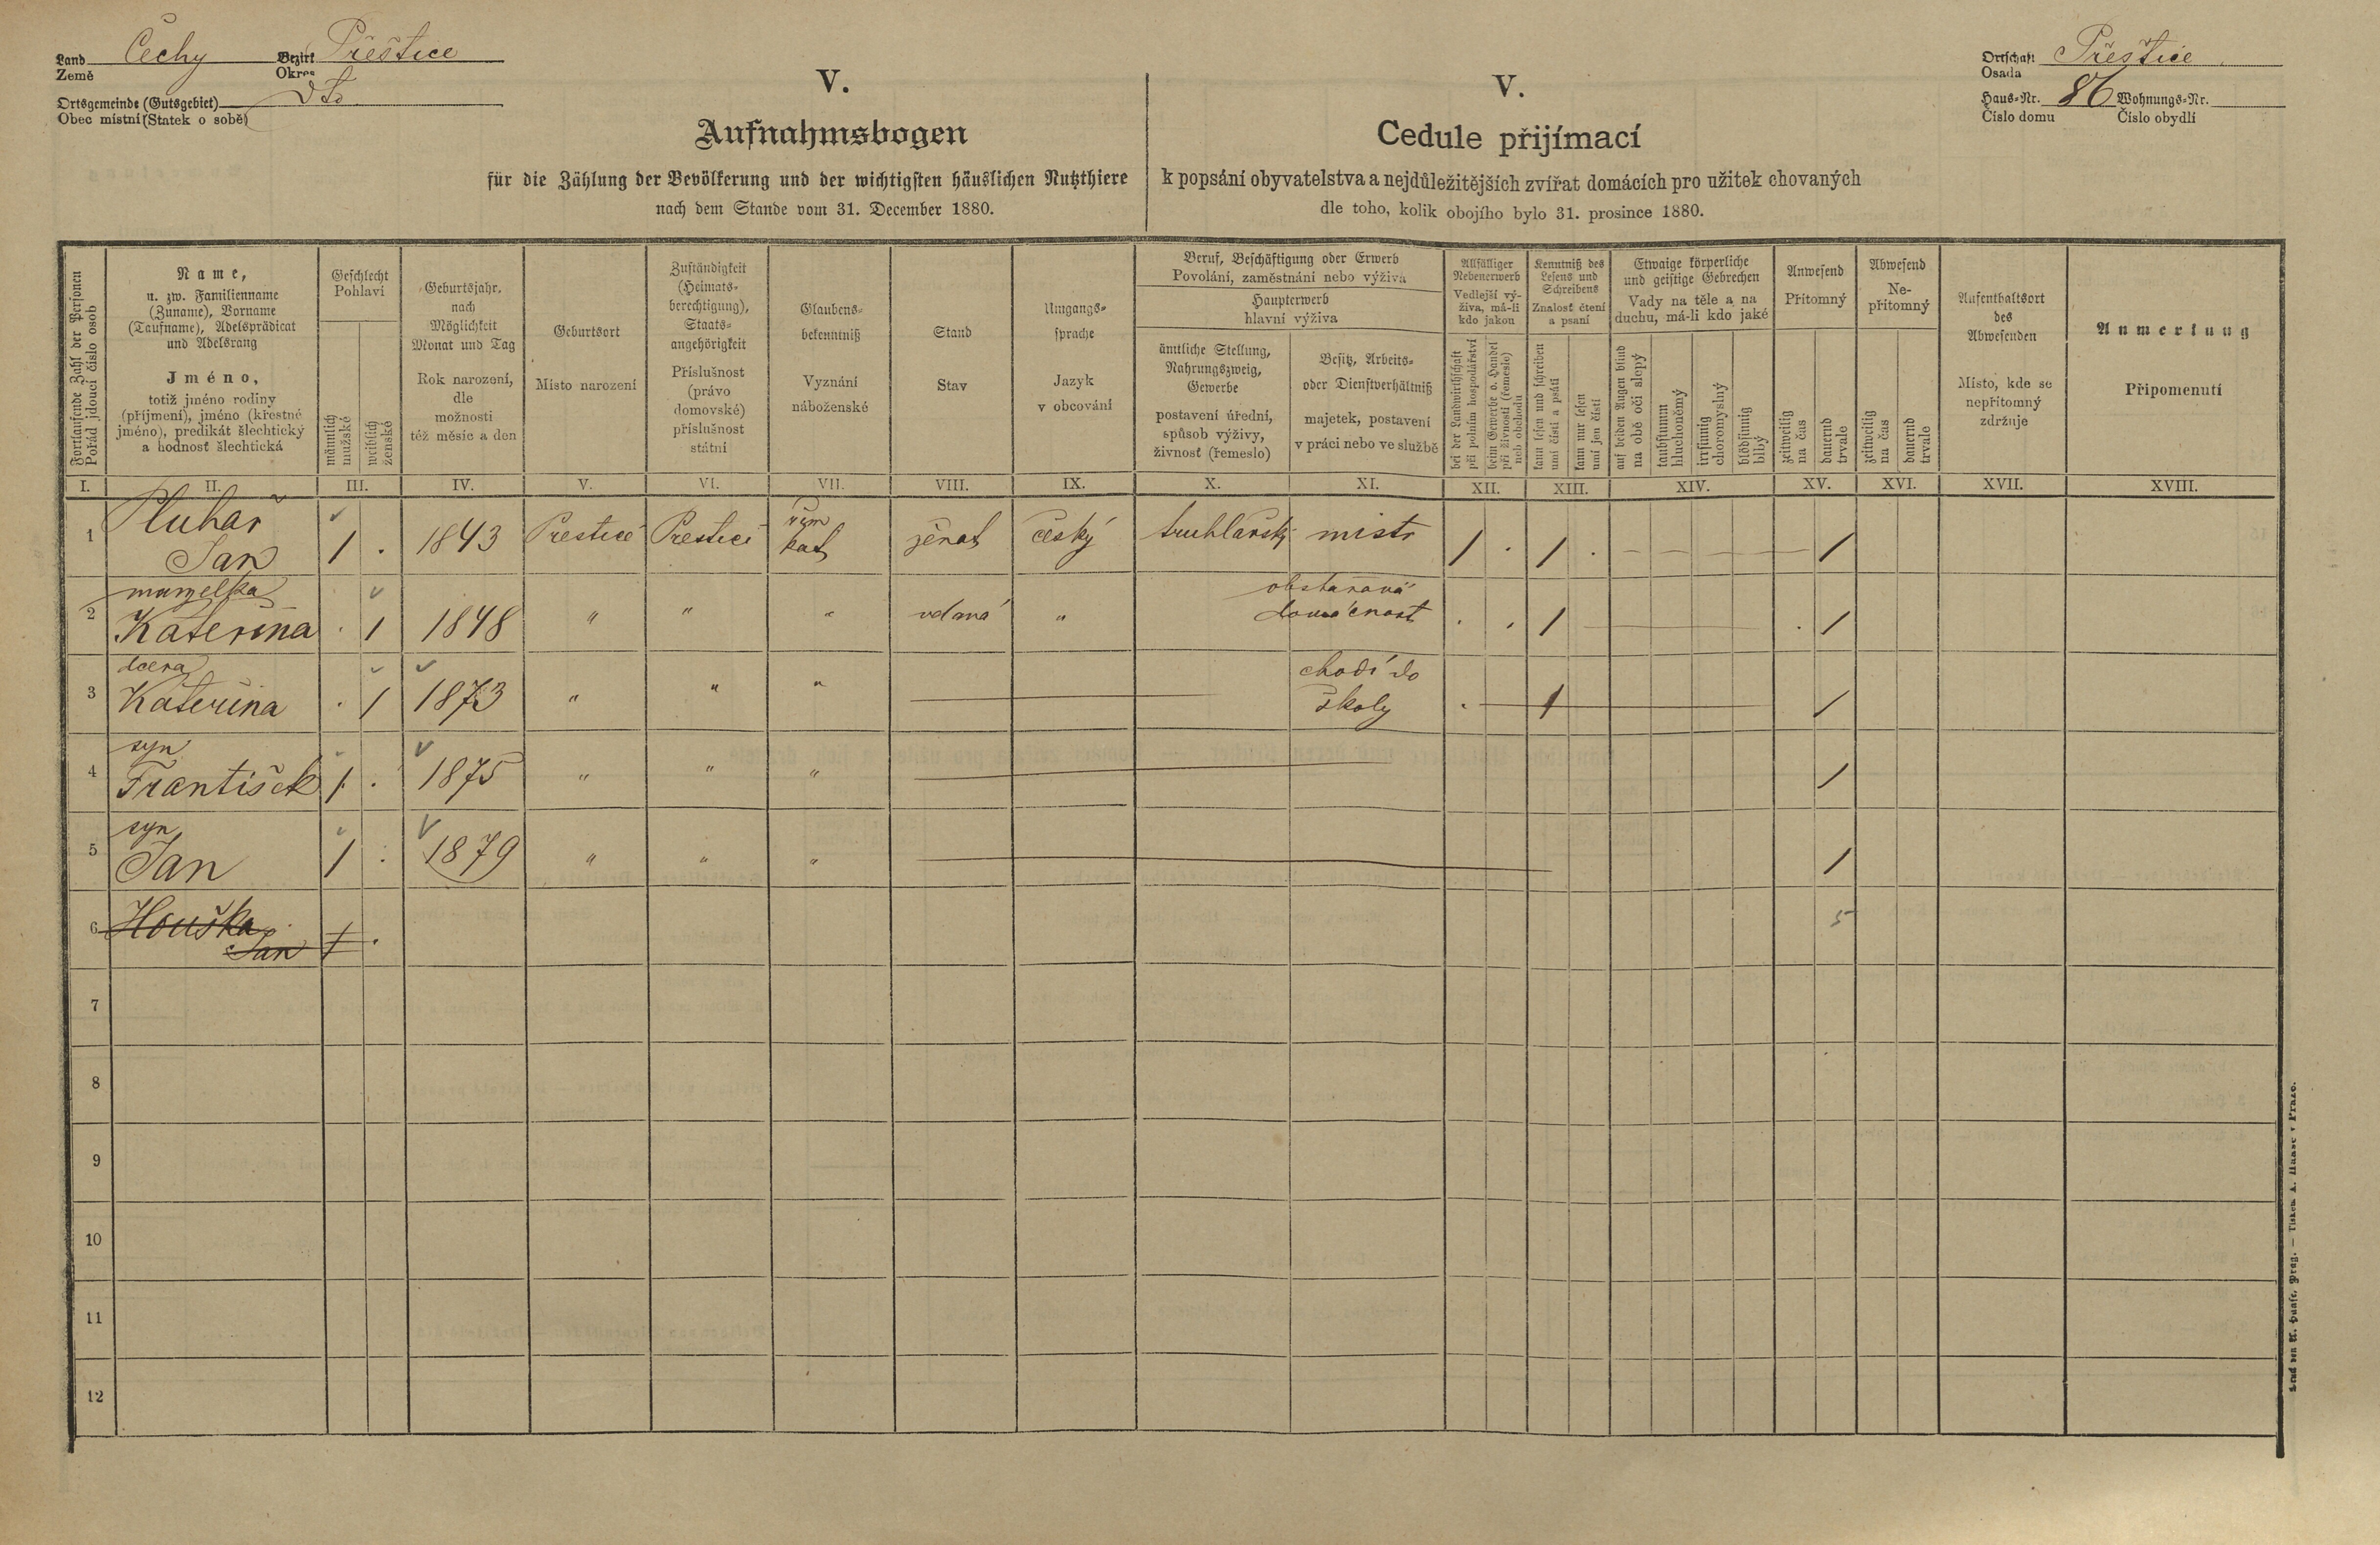 Land Čechy Bezirk Přeštice
Země Okres
Ortsgemeinde (Gutsgebiet) dto
Obec místní (Statek o sobě)
Ortschaft Přeštice
Osada
Haus-Nr. 86 Wohnungs-Nr.
Číslo domu Číslo obydlí
V.
Aufnahmsbogen
für die Zählung der Bevölkerung und der wichtigsten häuslichen Nutzthiere
nach dem Stande vom 31. December 1880.
V.
Cedule přijímací
k popsání obyvatelstva a nejdůležitějších zvířat domácích pro užitek chovaných
dle toho, kolik obojího bylo 31. prosince 1880.
Fortlaufende Zahl der Personen
Pořád jdoucí číslo osob
Name,
u. zw. Familienname
(Zuname), Vorname
(Taufname), Adelsprädicat
und Adelsrang
Jméno,
totiž jméno rodiny
(příjmení), jméno (křestné
jméno), predikát šlechtický
a hodnosť šlechtická
Geschlecht
Pohlaví
männlich
mužské
weiblich
ženské
Geburtsjahr,
nach
Möglichkeit
Monat und Tag
Rok narození,
dle
možnosti
též měsíc a den
Geburtsort
Místo narození
Zuständigkeit
(Heimats-
berechtigung),
Staats-
angehörigkeit
Příslušnost
(právo
domovské)
příslušnost
státní
Glaubens-
bekenntniß
Vyznání
náboženské
Stand
Stav
Umgangs-
sprache
Jazyk
v obcování
Beruf, Beschäftigung oder Erwerb
Povolání, zaměstnání nebo výživa
Haupterwerb
hlavní výživa
ämtliche Stellung,
Nahrungszweig,
Gewerbe
postavení úřední,
spůsob výživy,
živnosť (řemeslo)
Besitz, Arbeits-
oder Dienstverhältniß
majetek, postavení
v práci nebo ve službě
Allfälliger
Nebenerwerb
Vedlejší vý-
živa, má-li
kdo jakou
bei der Landwirthschaft
při polním hospodářství
beim Gewerbe o. Handel
při živnosti (řemeslo)
neb obchodu
Kenntniß des
Lesens und
Schreibens
Znalosť čtení
a psaní
kann lesen und schreiben
umí čísti a psáti
kann nur lesen
umí jen čísti
Etwaige körperliche
und geistige Gebrechen
Vady na těle a na
duchu, má-li kdo jaké
auf beiden Augen blind
na obě oči slepý
taubstumm
hluchoněmý
irrsinnig
choromyslný
blödsinnig
blbý
Anwesend
Přítomný
zeitweilig
na čas
dauernd
trvale
Abwesend
Ne-
přítomný
zeitweilig
na čas
dauernd
trvale
Aufenthaltsort
des
Abwesenden
Místo, kde se
nepřítomný
zdržuje
Anmerkung
Připomenutí
I. II. III. IV. V. VI. VII. VIII. IX. X. XI. XII. XIII. XIV. XV. XVI. XVII. XVIII.
1 Pluhař
Jan 1 . 1843 Přestice Přestice řím
kat ženat český truhlářský mistr 1 . 1 . – – – – 1
2 manželka
Kateřina . 1 1848 " " " vdaná " obstarává
domácnost . . 1 . 1
3 dcera
Kateřina . 1 1873 " " " chodí do
školy . 1 1
4 syn
František 1 . 1875 " " " 1
5 syn
Jan 1 . 1879 " " " 1
6 Houška
Jan 1 . 5
7
8
9
10
11
12
Druck von A. Haase, Prag. — Tiskem A. Haase v Praze.